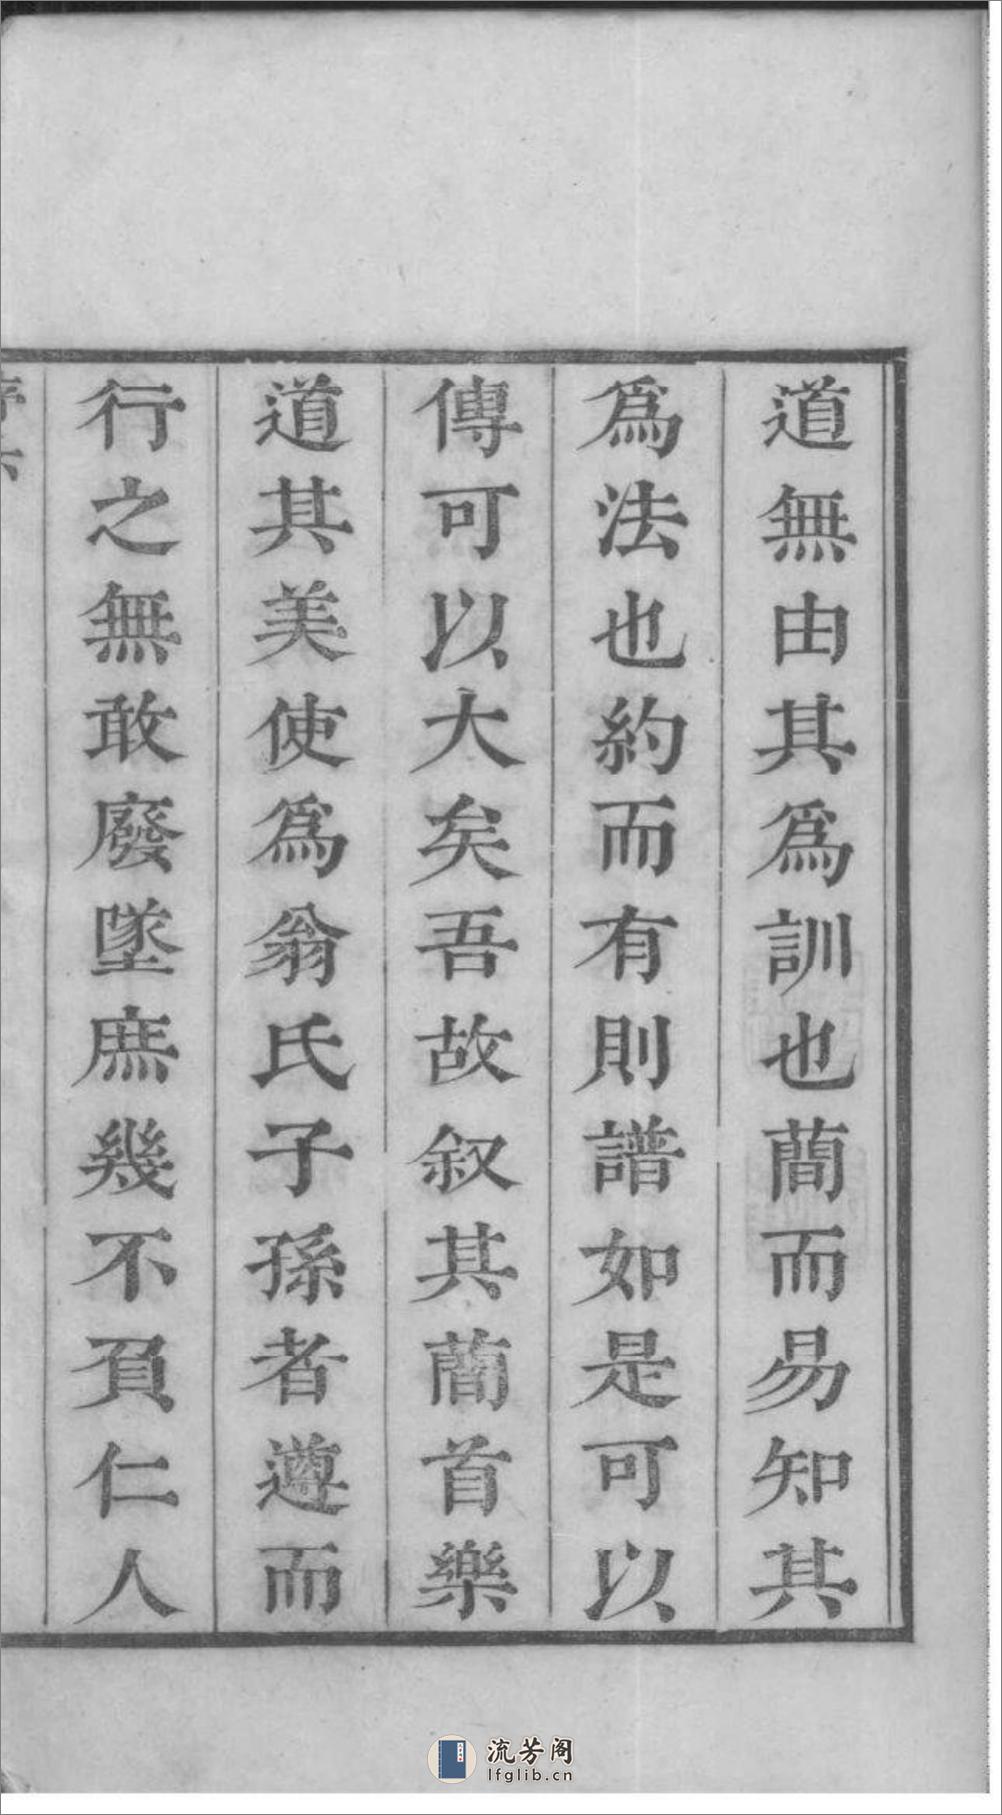 道無由其為訓也蕳而易知其
為法也約而有則譜如是可以
傳可以大矣吾故叙其蕳首樂
道其美使為翁氏子孫者遵而
行之無敢廢墜庶幾不負仁人
序六
流芳阁
lfglib.cn